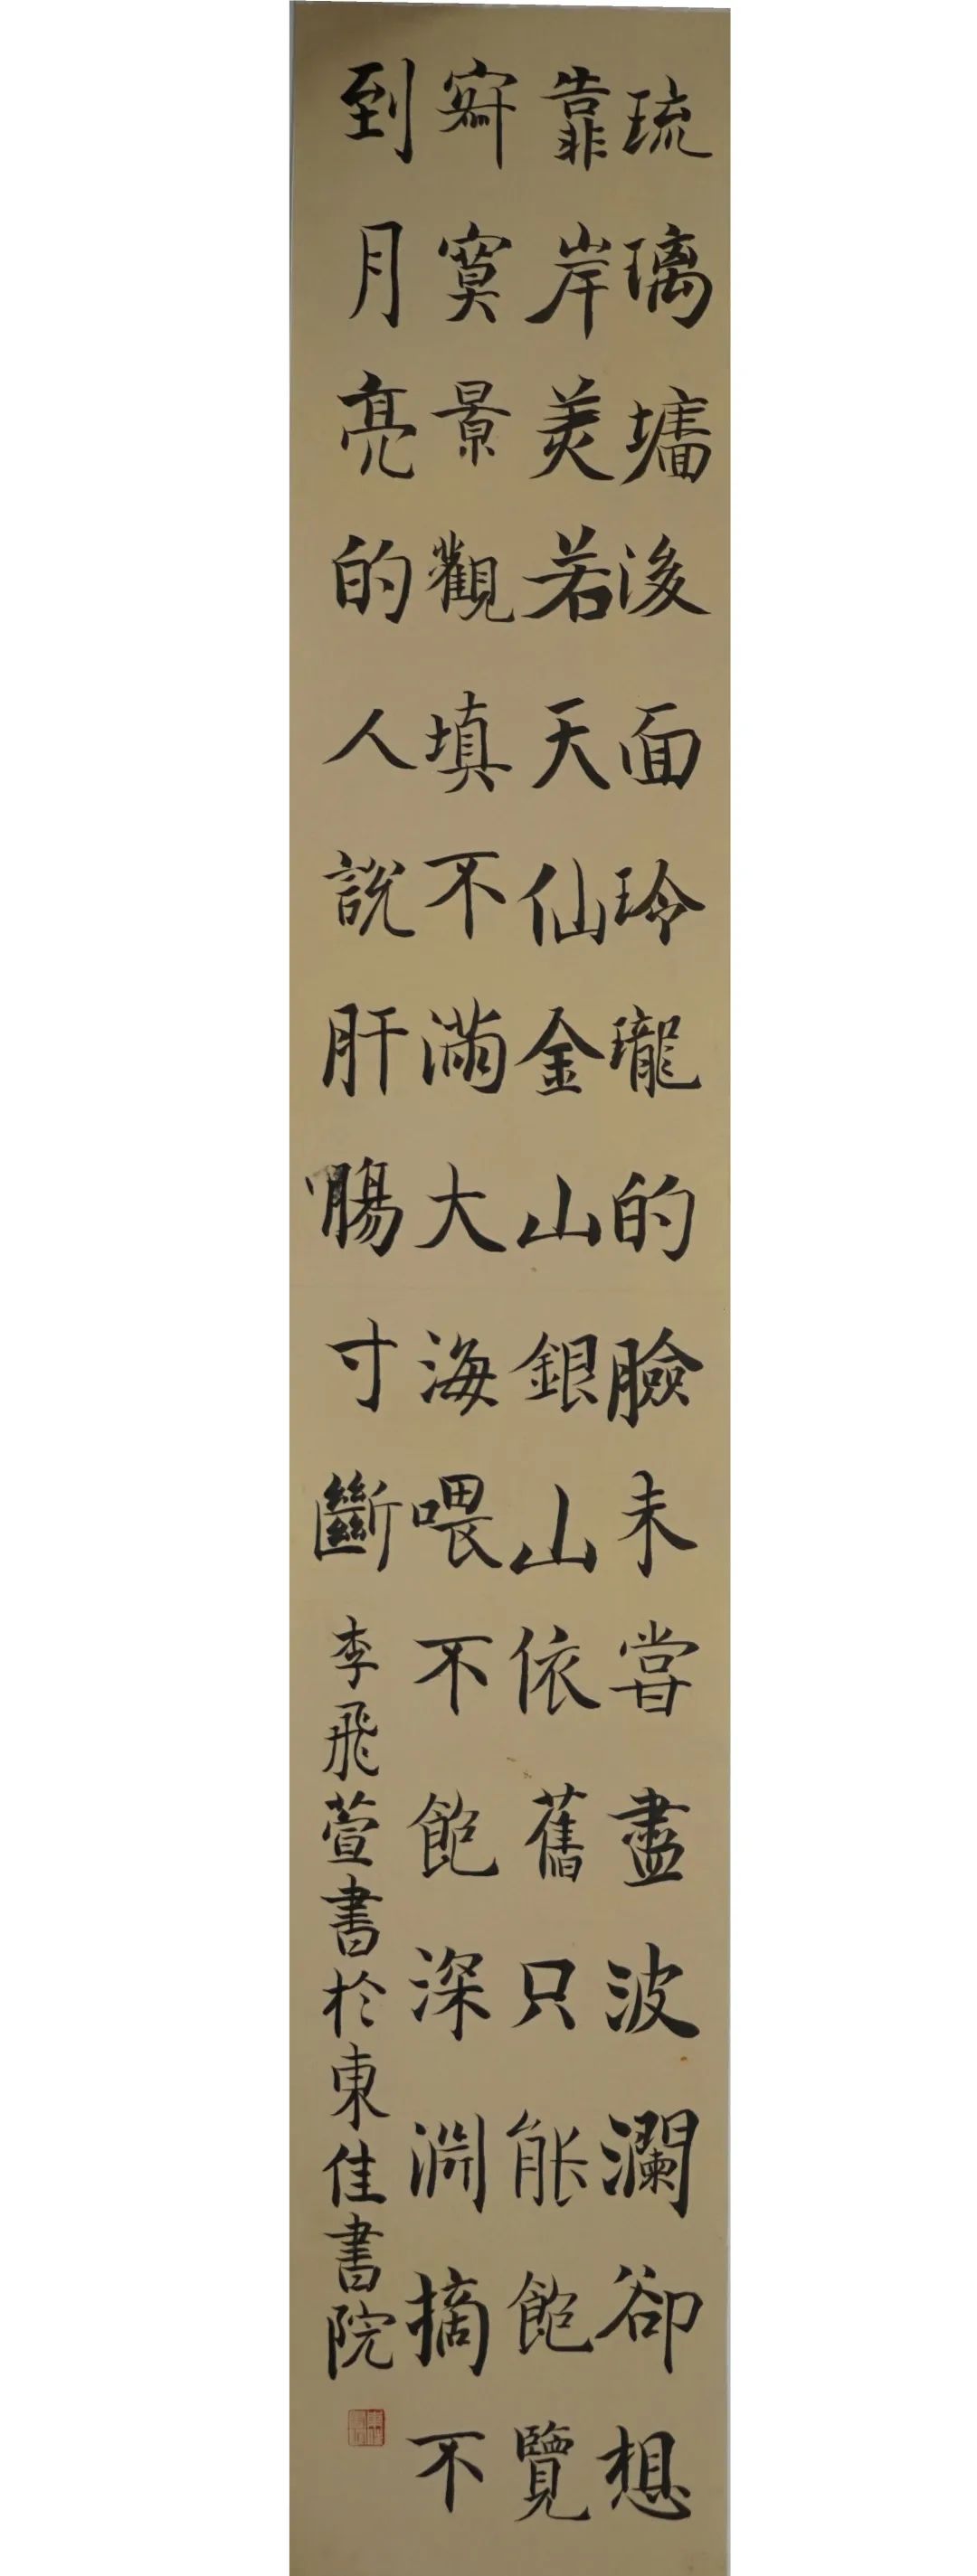 琉璃墻後面玲瓏的臉未嘗盡波瀾卻想
靠岸美若天仙金山銀山依舊只能飽覽
寂寞景觀填不滿大海喂不飽深淵摘不
到月亮的人說肝腸寸斷
李飛萱書於東佳書院